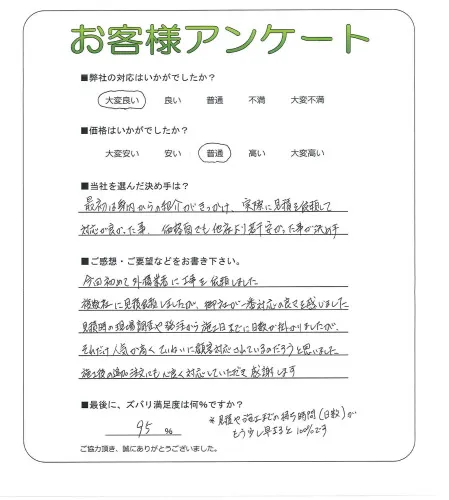 お客様アンケート
■弊社の対応はいかがでしたか？
大変良い 良い 普通 不満 大変不満
■価格はいかがでしたか？
大変安い 安い 普通 高い 大変高い
■当社を選んだ決め手は？
最初は身内からの紹介がきっかけ、実際に見積を依頼して
対応が良かった事、価格面でも他店より若干安かった事が決め手
■ご感想・ご要望などをお書き下さい。
今回初めて外構業者に工事を依頼しました
複数社に見積依頼しましたが、御社が一番対応の良さを感じました
見積時の現場調査や発注から施工日までに日数が掛かりましたが、
それだけ人気が高くていねいに顧客対応されているのだろうと思いました
施工後の追加注文にも心良く対応していただき感謝します
■最後に、ズバリ満足度は何%ですか？
95 %
＊見積や施工までの待ち時間(日数)が
もう少し早まると100%です
ご協力頂き、誠にありがとうございました。